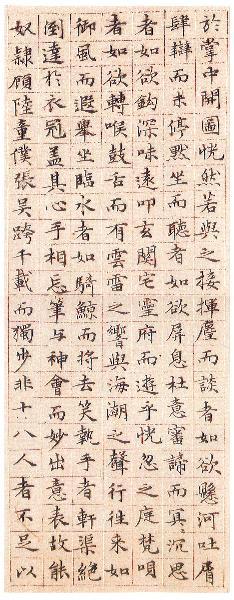 於掌中開圖恍然若與之接揮麈而談者如欲懸河吐屑
肆辯而未停默坐而聽者如欲屏息杜意審諦而冥沉思
者如欲鈎深味遠叩玄関宅靈府而遊乎恍忽之庭梵唄
者如欲轉喉鼓舌而有雲雷之響與海潮之聲行往来如
御風而遐舉坐臨水者如騎鯨而將去笑執手者軒渠絕
倒達於衣冠盖其心手相忘筆与神會而妙出意表故能
奴隷顧陸童僕張吴跨千載而獨步非十八人者不足以